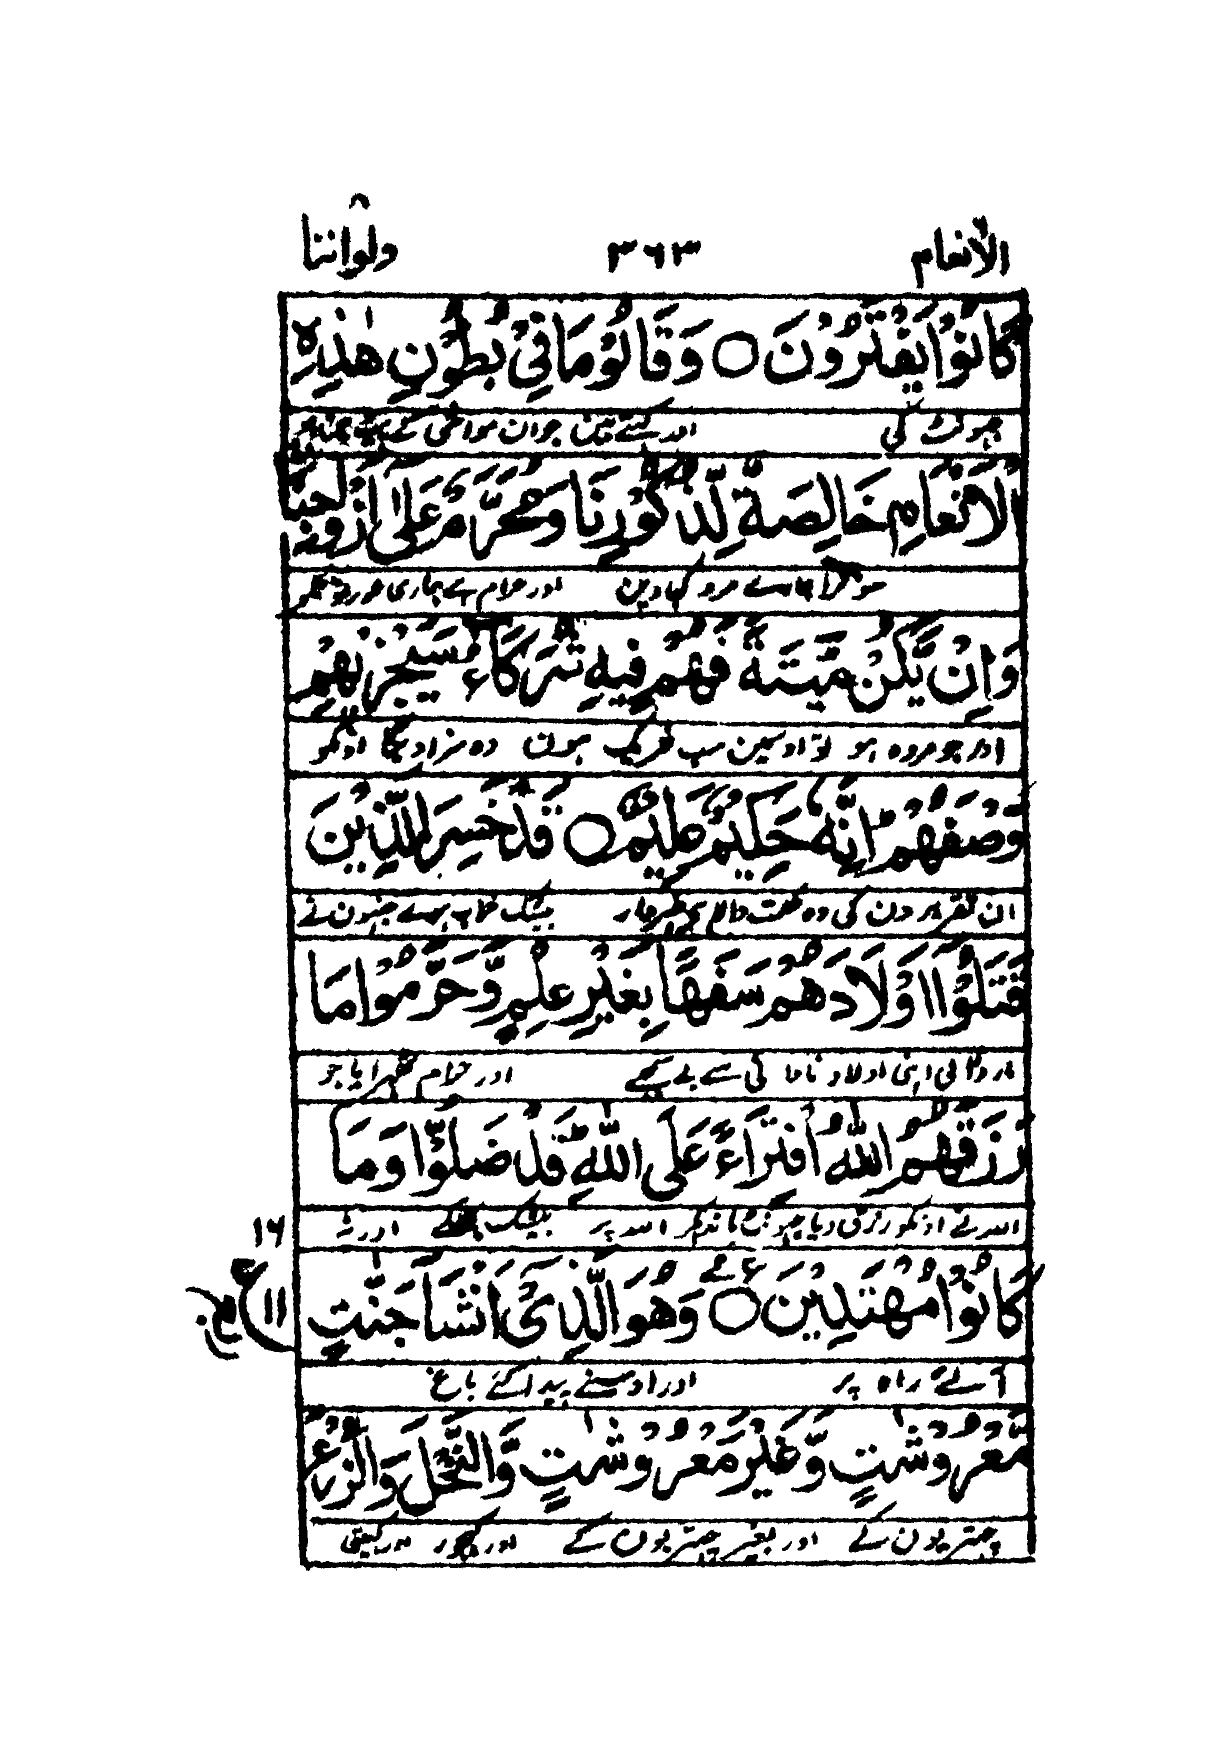 الانعام ۳۶۳ ولواننا ۸
كَانُوْا يَفْتَرُوْنَ ○ وَقَالُوْا مَا فِيْ بُطُوْنِ هٰذِهِ
جھونٹ کی اور کہتے ہین جو ان مواشی کے پیٹ
الْاَنْعَامِ خَالِصَةٌ لِّذُكُوْرِنَا وَمُحَرَّمٌ عَلٰٓى اَزْوَاجِنَا
سو مرد کہا وین اور حرام ہے ہماری عورتونکو
وَاِنْ يَّكُنْ مَّيْتَةً فَهُمْ فِيْهِ شُرَكَآءُ سَيَجْزِيْهِمْ
اور جو مردہ ہو تو اوسمین سب شریک ہون وہ سزا دیگا اونکو
وَصْفَهُمْ ؕ اِنَّهٗ حَكِيْمٌ عَلِيْمٌ ○ قَدْ خَسِرَ الَّذِيْنَ
ان تقریرون کی وہ حکمت والا ہی خبردار بیشک خراب ہوے جنہون نے
قَتَلُوْٓا اَوْلَادَهُمْ سَفَهًا بِغَيْرِ عِلْمٍ وَّحَرَّمُوْا مَا
مار ڈالی اپنی اولاد نادانی سے بے سمجھے اور حرام ٹھہرایا جو
رَزَقَهُمُ اللّٰهُ افْتِرَآءً عَلَى اللّٰهِ ؕ قَدْ ضَلُّوْا وَمَا
اللہ نے اونکو رزق دیا جھونٹ باندھکر اللہ پر بیشک بہکے اور نہ
كَانُوْا مُهْتَدِيْنَ ○ وَهُوَ الَّذِيْٓ اَنْشَاَ جَنّٰتٍ
۱۶
ع ۱۱
آئے راہ پر اور اوسنے پیدا کئے باغ
مَّعْرُوْشٰتٍ وَّغَيْرَ مَعْرُوْشٰتٍ وَّالنَّخْلَ وَالزَّرْعَ
چھتریون کے اور بغیر چھتریون کے اور کھجور اور کھیتی